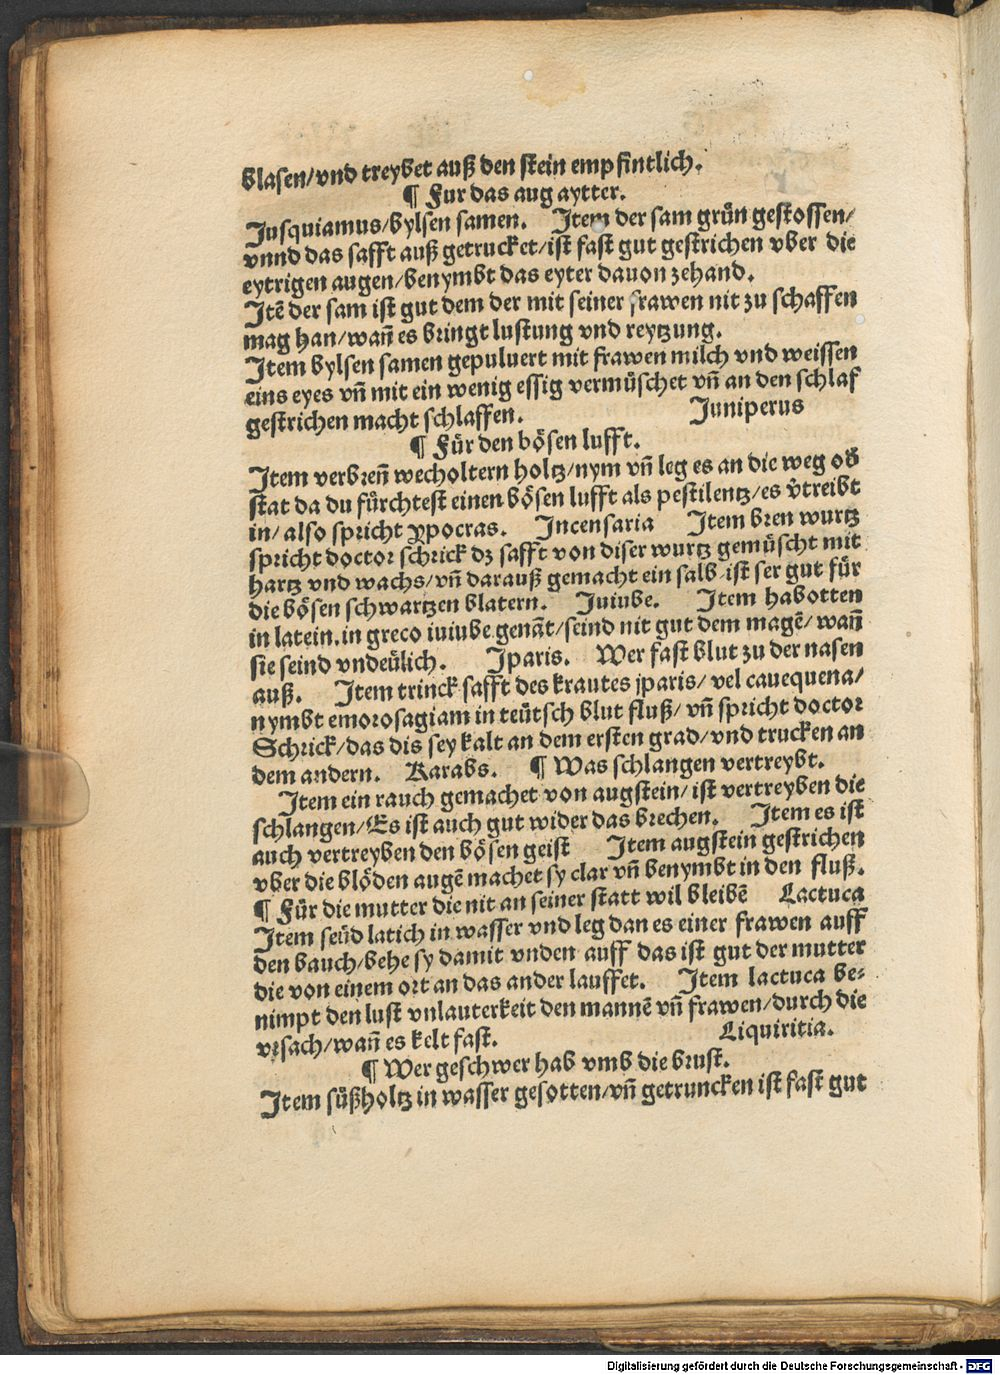 blasen/vnd treybet auß den stein empfintlich.
¶ Fur das aug aytter.
Jusquiamus/bylsen samen. Item der sam grün gestossen/
vnnd das safft auß getrucket/ist fast gut gestrichen vber die
eytrigen augen/benymbt das eyter dauon zehand.
Itē der sam ist gut dem der mit seiner frawen nit zu schaffen
mag han/wañ es bringt lustung vnd reytzung.
Item bylsen samen gepuluert mit frawen milch vnd weissen
eins eyes vñ mit ein wenig essig vermüschet vñ an den schlaf
gestrichen macht schlaffen. Juniperus
¶ Für den bösen lufft.
Item verbreñ wecholtern holtz/nym vñ leg es an die weg od̕
stat da du fürchtest einen bösen lufft als pestilentz/es v̕treibt
in/also spricht ypocras. Incensaria Item bren wurtz
spricht doctor schrick dz safft von diser wurtz gemüscht mit
hartz vnd wachs/vñ darauß gemacht ein salb/ist ser gut für
die bösen schwartzen blatern. Juiube. Item habotten
in latein.in greco iuiube.genāt/seind nit gut dem magē/wañ
sie seind vndeülich. Iparis. Wer fast blut zu der nasen
auß. Item trinck safft des krautes jparis/vel cauequena/
nymbt emorosagiam in teütsch blut fluß/vñ spricht doctor
Schrick/das dis sey kalt an dem ersten grad/vnd trucken an
dem andern. Karabs. ¶ Was schlangen vertreybt.
Item ein rauch gemachet von augstein/ist vertreyben die
schlangen/Es ist auch gut wider das brechen. Item es ist
auch vertreyben den bösen geist Item augstein gestrichen
vber die blöden augē machet sy clar vñ benymbt in den fluß.
¶ Für die mutter die nit an seiner statt wil bleibē Lactuca
Item seüd latich in wasser vnd leg dan es einer frawen auff
den bauch/behe sy damit vnden auff das ist gut der mutter
die von einem ort an das ander lauffet. Item lactuca be⸗
nimpt den lust vnlauterkeit den mannē vñ frawen/durch die
vrsach/wañ es kelt fast. Liquiritia.
¶ Wer geschwer hab vmb die brust.
Item süßholtz in wasser gesotten/vñ getruncken ist fast gut
Digitalisierung gefördert durch die Deutsche Forschungsgemeinschaft - DFG